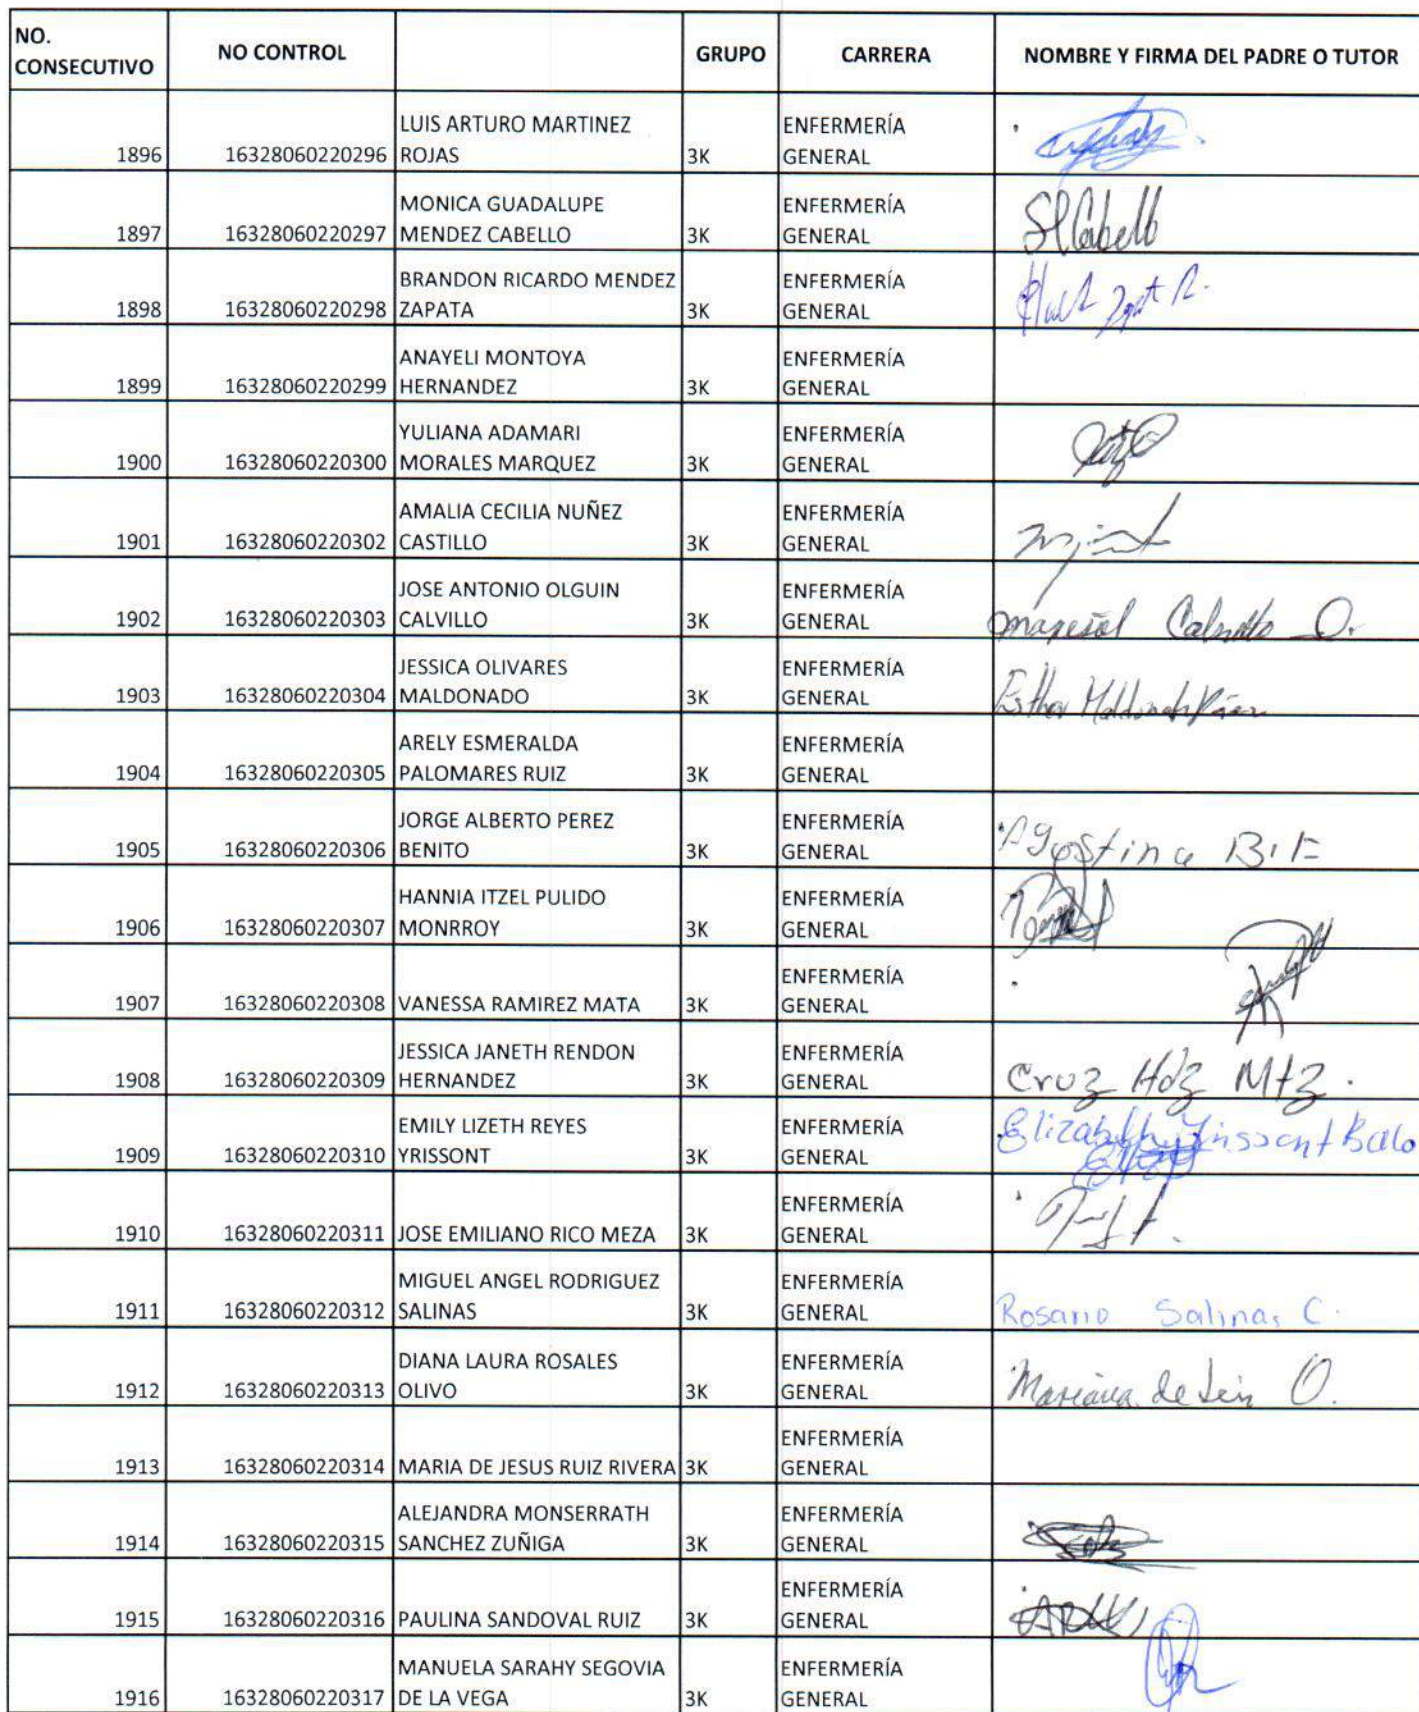 NO. CONSECUTIVO NO CONTROL GRUPO CARRERA NOMBRE Y FIRMA DEL PADRE O TUTOR
1896 16328060220296 LUIS ARTURO MARTINEZ ROJAS 3K ENFERMERÍA GENERAL
1897 16328060220297 MONICA GUADALUPE MENDEZ CABELLO 3K ENFERMERÍA GENERAL
1898 16328060220298 BRANDON RICARDO MENDEZ ZAPATA 3K ENFERMERÍA GENERAL
1899 16328060220299 ANAYELI MONTOYA HERNANDEZ 3K ENFERMERÍA GENERAL
1900 16328060220300 YULIANA ADAMARI MORALES MARQUEZ 3K ENFERMERÍA GENERAL
1901 16328060220302 AMALIA CECILIA NUÑEZ CASTILLO 3K ENFERMERÍA GENERAL
1902 16328060220303 JOSE ANTONIO OLGUIN CALVILLO 3K ENFERMERÍA GENERAL Marisol Calvillo O.
1903 16328060220304 JESSICA OLIVARES MALDONADO 3K ENFERMERÍA GENERAL Esther Maldonado
1904 16328060220305 ARELY ESMERALDA PALOMARES RUIZ 3K ENFERMERÍA GENERAL
1905 16328060220306 JORGE ALBERTO PEREZ BENITO 3K ENFERMERÍA GENERAL Agostina B.E
1906 16328060220307 HANNIA ITZEL PULIDO MONRROY 3K ENFERMERÍA GENERAL
1907 16328060220308 VANESSA RAMIREZ MATA 3K ENFERMERÍA GENERAL
1908 16328060220309 JESSICA JANETH RENDON HERNANDEZ 3K ENFERMERÍA GENERAL Cruz Hdz Mtz.
1909 16328060220310 EMILY LIZETH REYES YRISSONT 3K ENFERMERÍA GENERAL Elizabeth Yrissont Bello
1910 16328060220311 JOSE EMILIANO RICO MEZA 3K ENFERMERÍA GENERAL
1911 16328060220312 MIGUEL ANGEL RODRIGUEZ SALINAS 3K ENFERMERÍA GENERAL Rosario Salinas C.
1912 16328060220313 DIANA LAURA ROSALES OLIVO 3K ENFERMERÍA GENERAL Mariana de León O.
1913 16328060220314 MARIA DE JESUS RUIZ RIVERA 3K ENFERMERÍA GENERAL
1914 16328060220315 ALEJANDRA MONSERRATH SANCHEZ ZUÑIGA 3K ENFERMERÍA GENERAL
1915 16328060220316 PAULINA SANDOVAL RUIZ 3K ENFERMERÍA GENERAL
1916 16328060220317 MANUELA SARAHY SEGOVIA DE LA VEGA 3K ENFERMERÍA GENERAL